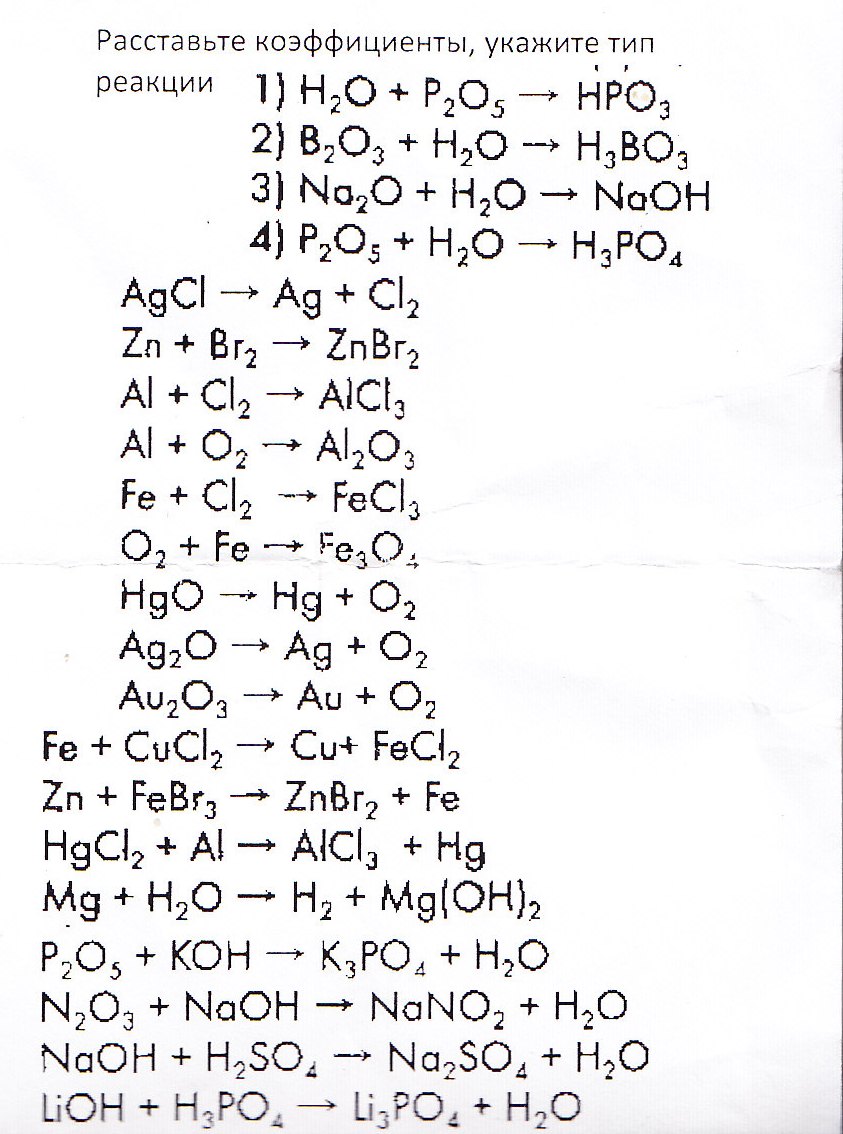 Расставьте коэффициенты, укажите тип
реакции 1) H₂O + P₂O₅ → HPO₃
2) B₂O₃ + H₂O → H₃BO₃
3) Na₂O + H₂O → NaOH
4) P₂O₅ + H₂O → H₃PO₄
AgCl → Ag + Cl₂
Zn + Br₂ → ZnBr₂
Al + Cl₂ → AlCl₃
Al + O₂ → Al₂O₃
Fe + Cl₂ → FeCl₃
O₂ + Fe → Fe₃O₄
HgO → Hg + O₂
Ag₂O → Ag + O₂
Au₂O₃ → Au + O₂
Fe + CuCl₂ → Cu+ FeCl₂
Zn + FeBr₃ → ZnBr₂ + Fe
HgCl₂ + Al → AlCl₃ + Hg
Mg + H₂O → H₂ + Mg(OH)₂
P₂O₅ + KOH → K₃PO₄ + H₂O
N₂O₃ + NaOH → NaNO₂ + H₂O
NaOH + H₂SO₄ → Na₂SO₄ + H₂O
LiOH + H₃PO₄ → Li₃PO₄ + H₂O